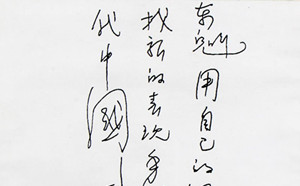 用自己的
找新的表现
代中國